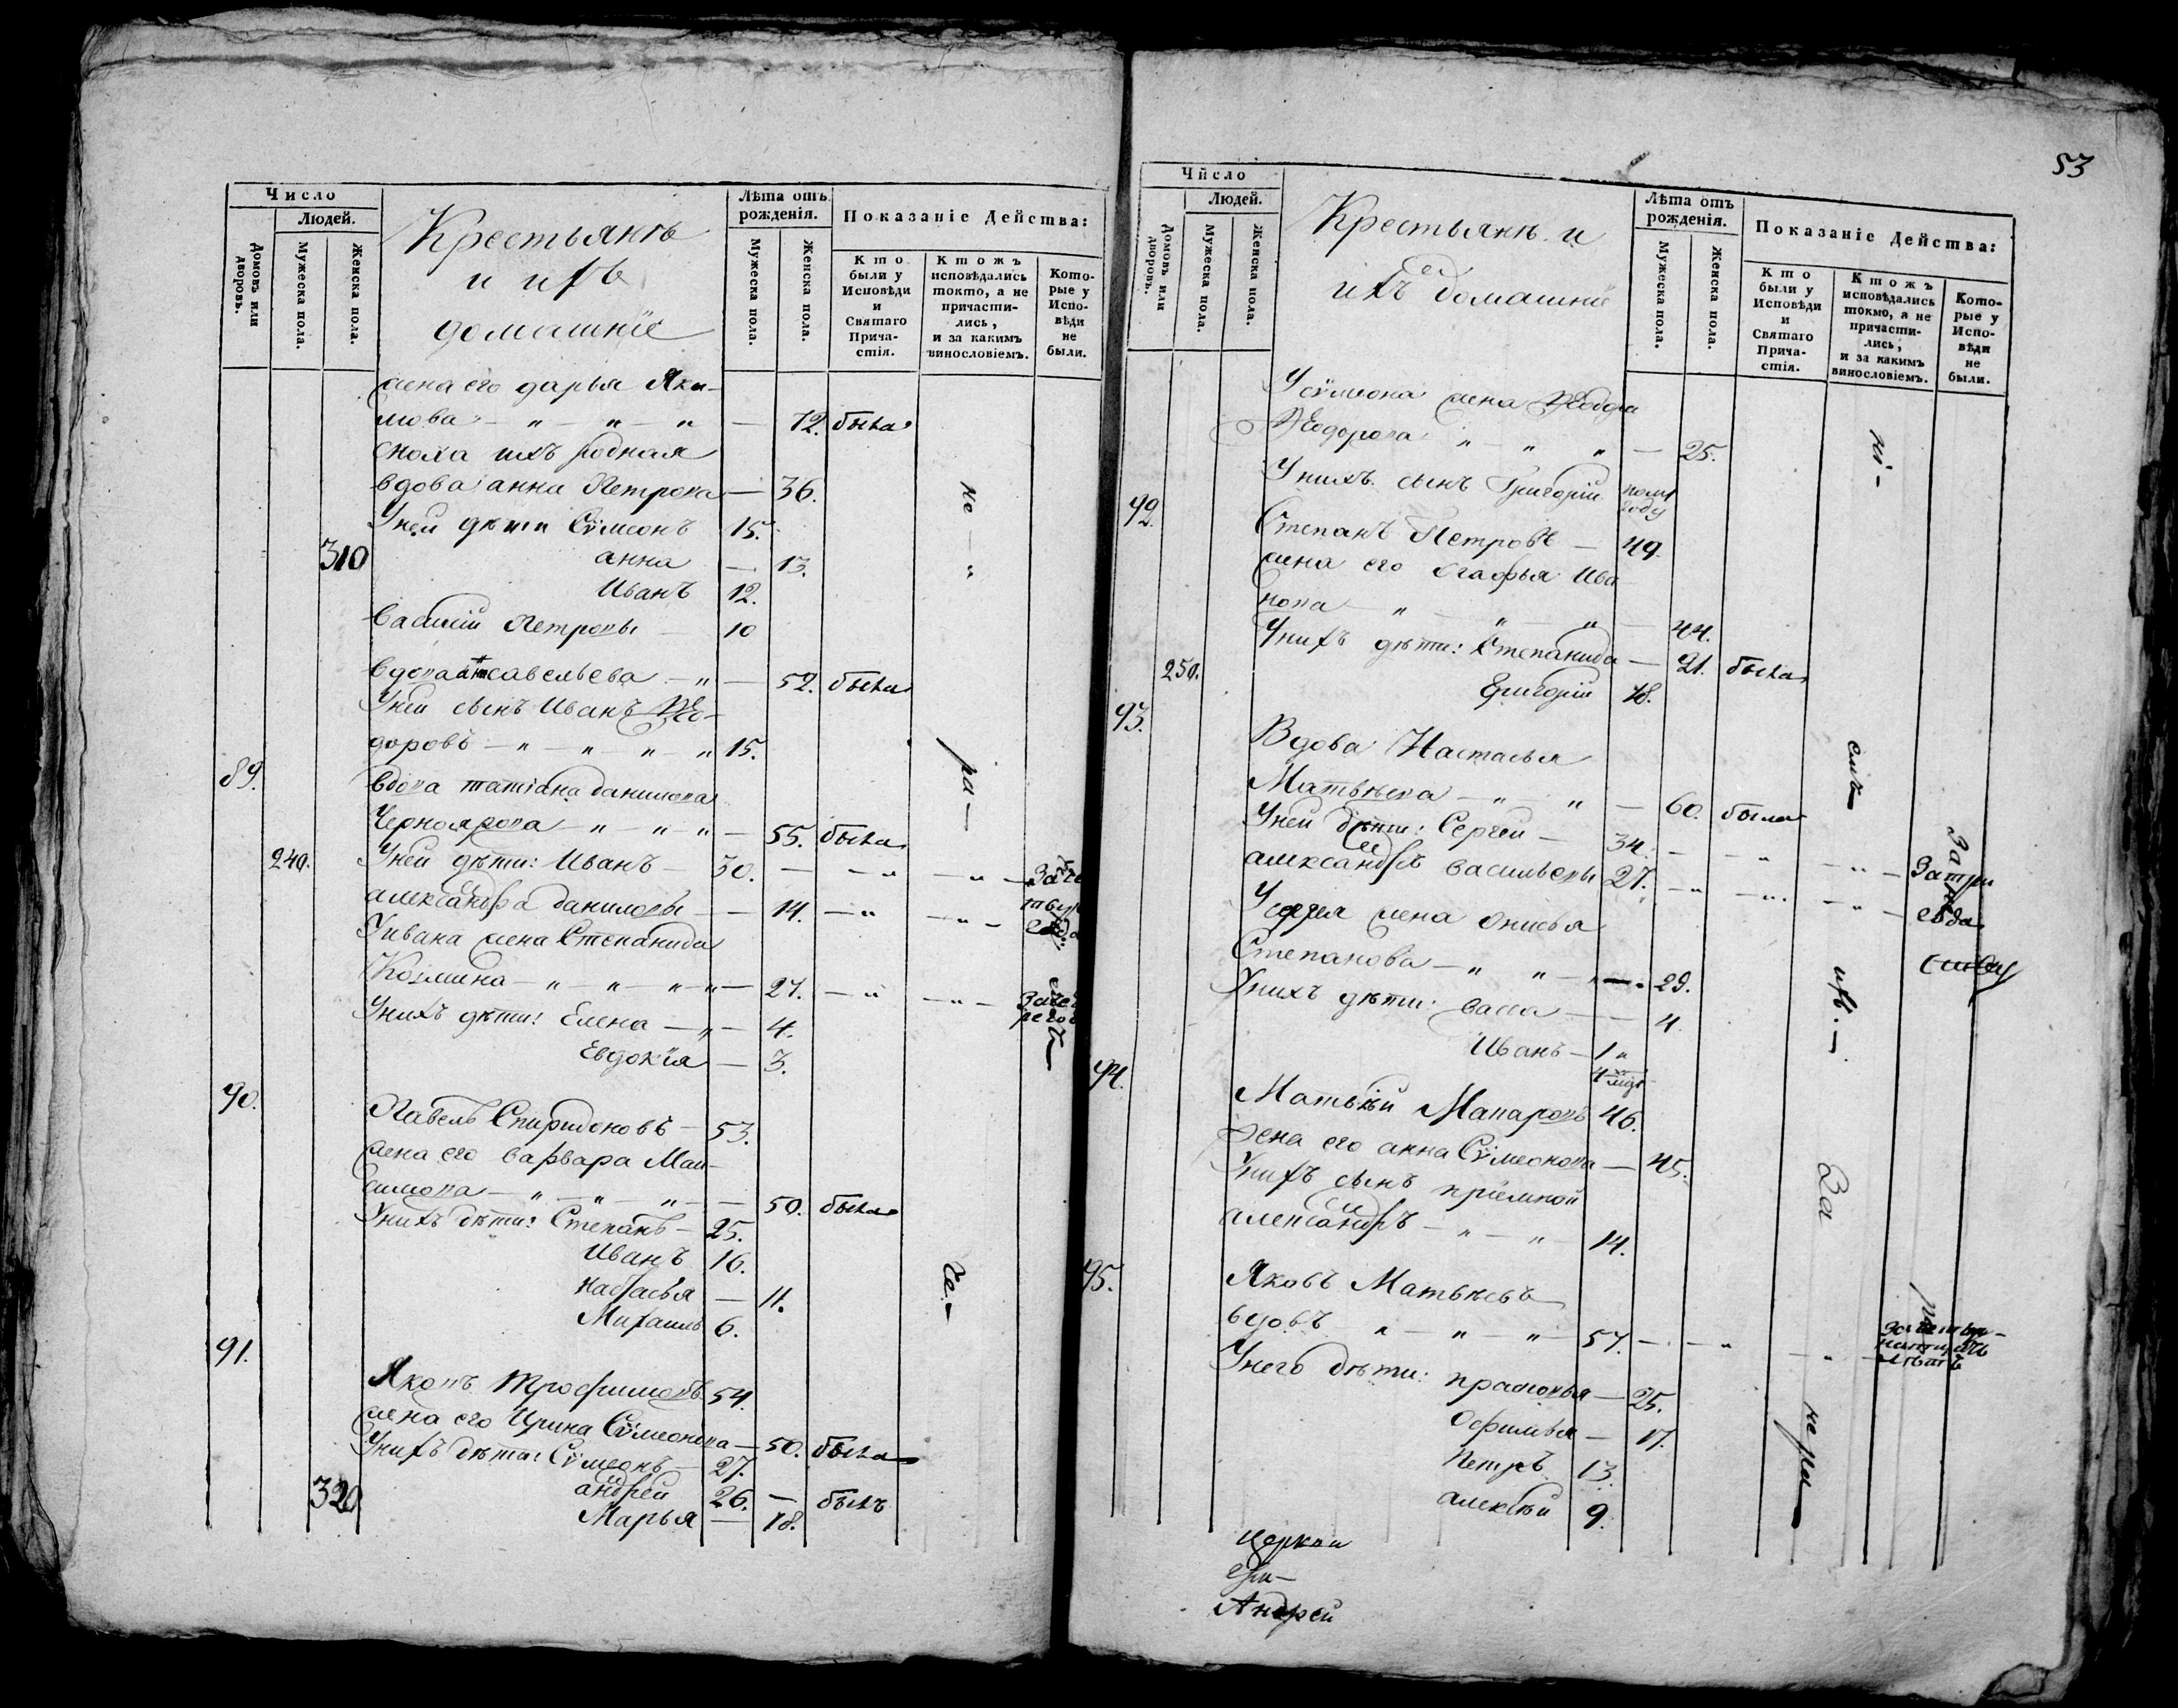 Число
Людей.
Домовъ или дворовъ.
Мужеска пола.
Женска пола.
Крестьянъ
и ихъ
домашнїе
Лѣта отъ рожденія.
Мужеска пола.
Женска пола.
Показаніе Дѣйства:
Кто были у Исповѣди и Святаго Причастія.
Ктожъ исповѣдались токмо, а не причастились, и за какимъ винословіемъ.
Которые у Исповѣди не были.
жена его дарья Яки-
мова - „ - „ - „ — 72. была
сноха ихъ родная
вдова анна Петрова — 36.
У ней дѣти Сѵмеонъ 15.
310 анна — 13.
Иванъ 12.
Василій Петровы — 10
вдова савельева - „ — 52. была
У ней сынъ Иванъ Ѳео-
доровъ - „ - „ - „ - „ 15.
89. вдова татіана данилова
Черноярова - „ - „ - „ — 55. была
240. У ней дѣти: Иванъ — 30. — - „ - „ -
александра даниловы — 14. — „ - „ -
У ивана жена Степанида
Козмина - „ - „ - „ - „ — 27. — „ - „ -
У нихъ дѣти: Елена - „ — 4.
Евдокїя — 3.
90. Павелъ Спиридоновъ — 53.
жена его варвара Мак-
симова - „ - „ - „ — 50. была
У нихъ дѣти: Степанъ — 25.
Иванъ 16.
настасья — 11.
Михаилъ 6.
91. Яковъ Трофимовъ 54.
жена его Ирина Сѵмеонова — 50. была
У нихъ дѣти: Сѵмеонъ — 27.
андрей 26. — былъ
320 Марья — 18.
не
-
„
ра —
че. —
53
Число
Людей.
Домовъ или дворовъ.
Мужеска пола.
Женска пола.
Крестьянъ и
ихъ домашнїе
Лѣта отъ рожденія.
Мужеска пола.
Женска пола.
Показаніе Дѣйства:
Кто были у Исповѣди и Святаго Причастія.
Ктожъ исповѣдались токмо, а не причастились, и за какимъ винословіемъ.
Которые у Исповѣди не были.
У сѵмеона жена
Ѳеодорова „ - „ „ — 25.
У нихъ сынъ Григорій полу году
92. Степанъ Петровъ — 49.
жена его Агафья Ива
нова - „ - „ - „ — 44.
У нихъ дѣти: Степанида — 21. была
250. Григорій 18.
93. Вдова Настасья
Матвѣева - „ - „ — 60. была
У ней дѣти: Сергей — 34. — - „ - „ - За три
александръ васильевы 27. - „ - „ - „ - года
У сергея жена Анисья
Степанова - „ „ — 29.
У нихъ дѣти: васса — 4
Иванъ — 1 „
94. Матвѣй Макаровъ 46.
жена его анна Сѵмеонова — 45.
У нихъ сынъ прїемной
александръ - „ - „ — 14.
95. Яковъ Матвѣевъ
вдовъ „ - „ - „ — 57. — „ - „
лѣтъ
У него дѣти: прасковья — 25.
Офимья — 17.
Петръ 13.
алексѣй 9.
За
не ра —
церкви
Гри-
Андрей